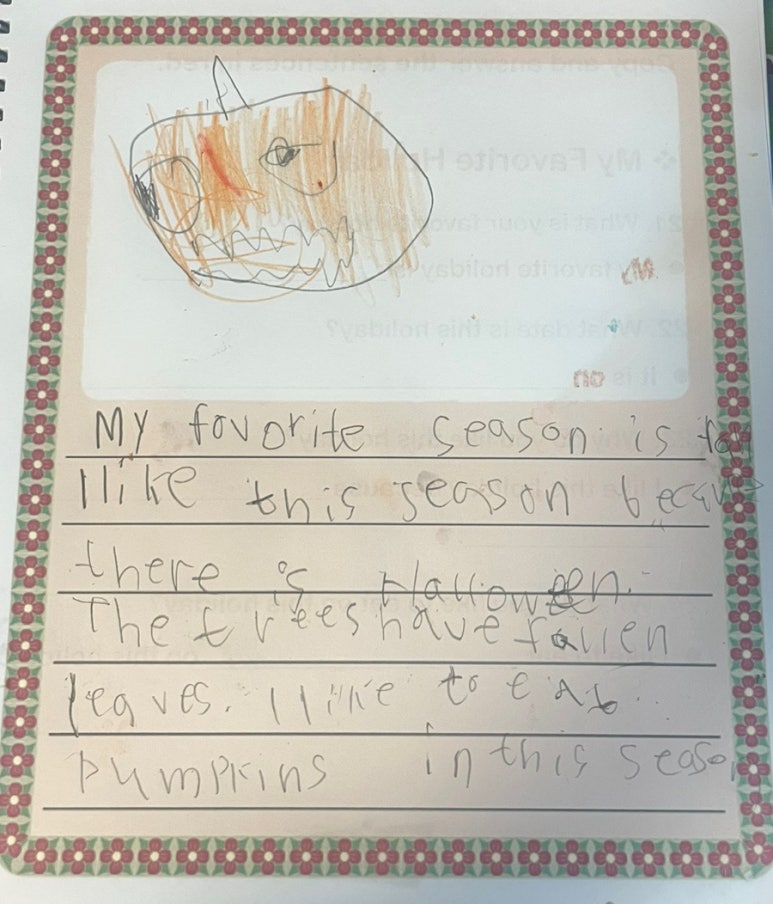 My favorite season is fall
I like this season because
there is Halloween.
The trees have fallen
leaves. I like to eat
pumpkins in this season